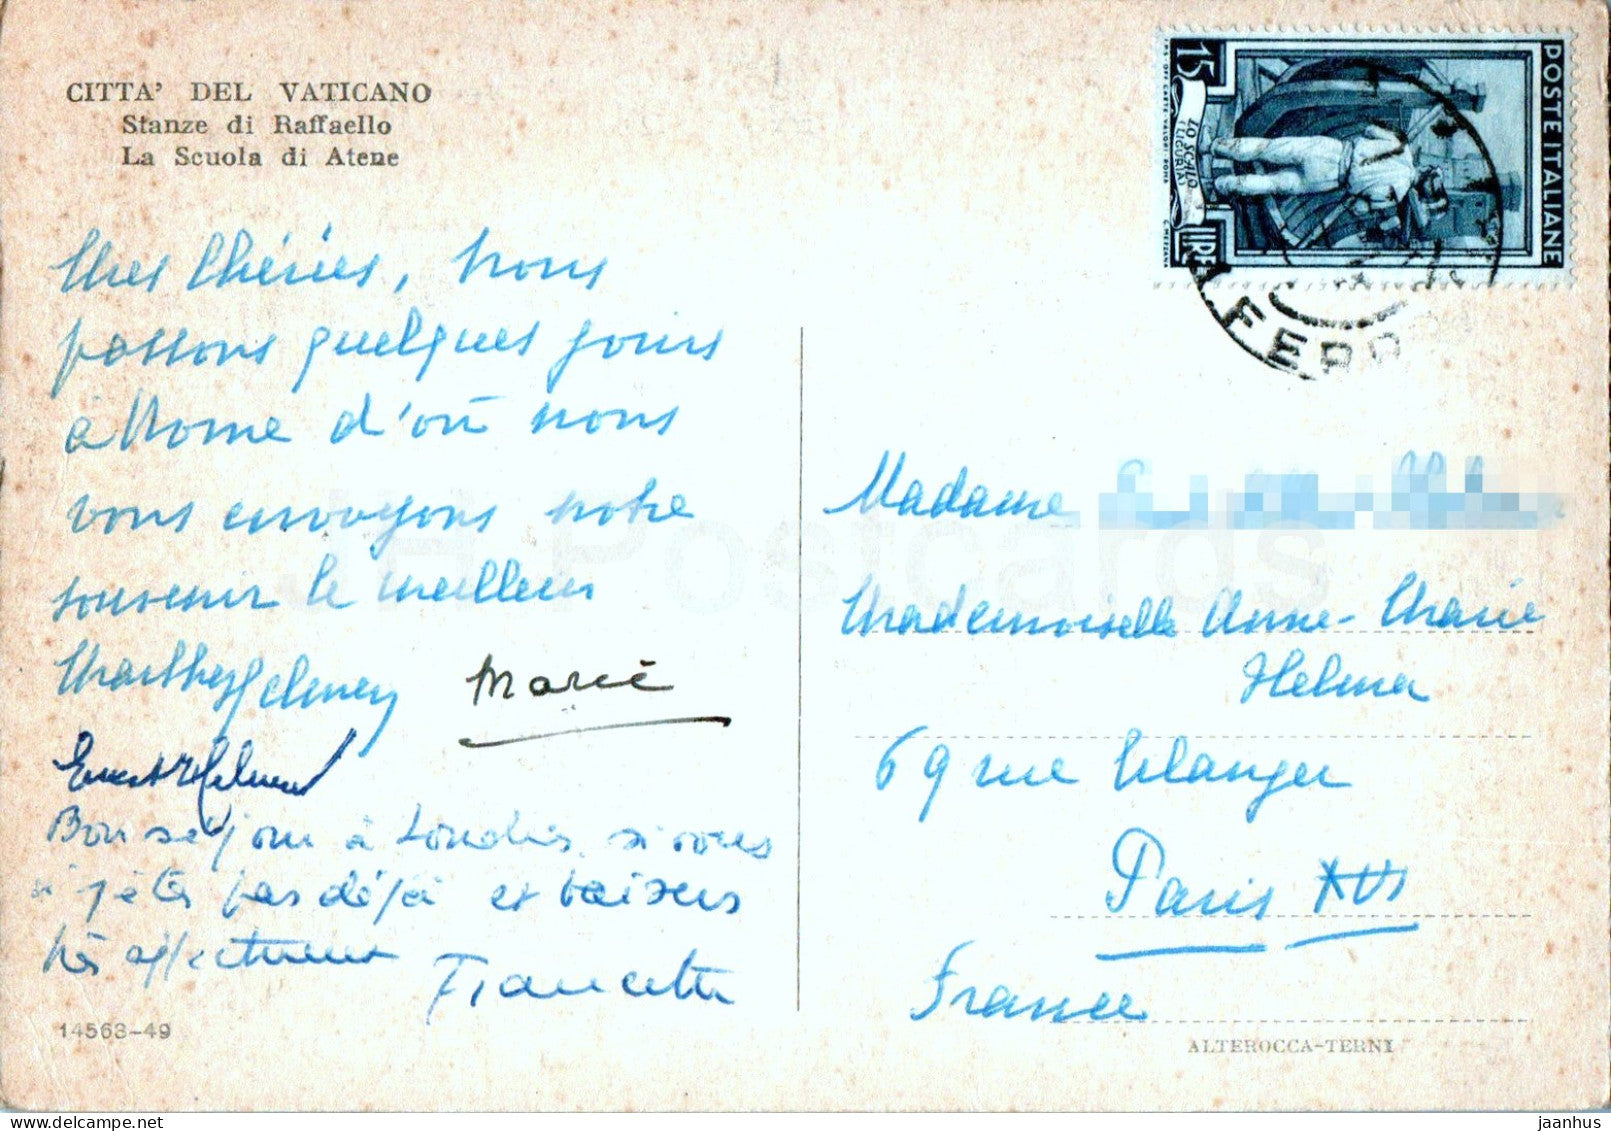 CITTA' DEL VATICANO
Stanze di Raffaello
La Scuola di Atene
POSTE ITALIANE
15
LIRE
LO SCALO
(LIGURIA)
C. MEZZANA
FERR
Mes Chéries, nous
passons quelques jours
à Rome d'où nous
vous envoyons notre
souvenir le meilleur
Marthe Helmer
Marie
Ernest Helmer
Bon séjour à Londres, si vous
n'y êtes pas déjà et baisers
très affectueux
Francette
14563-49
Madame
Mademoiselle Anne-Marie
Helmer
69 rue Erlanger
Paris XVI
France
ALTEROCCA-TERNI
JH Postcards
jaanhus
delcampe.net